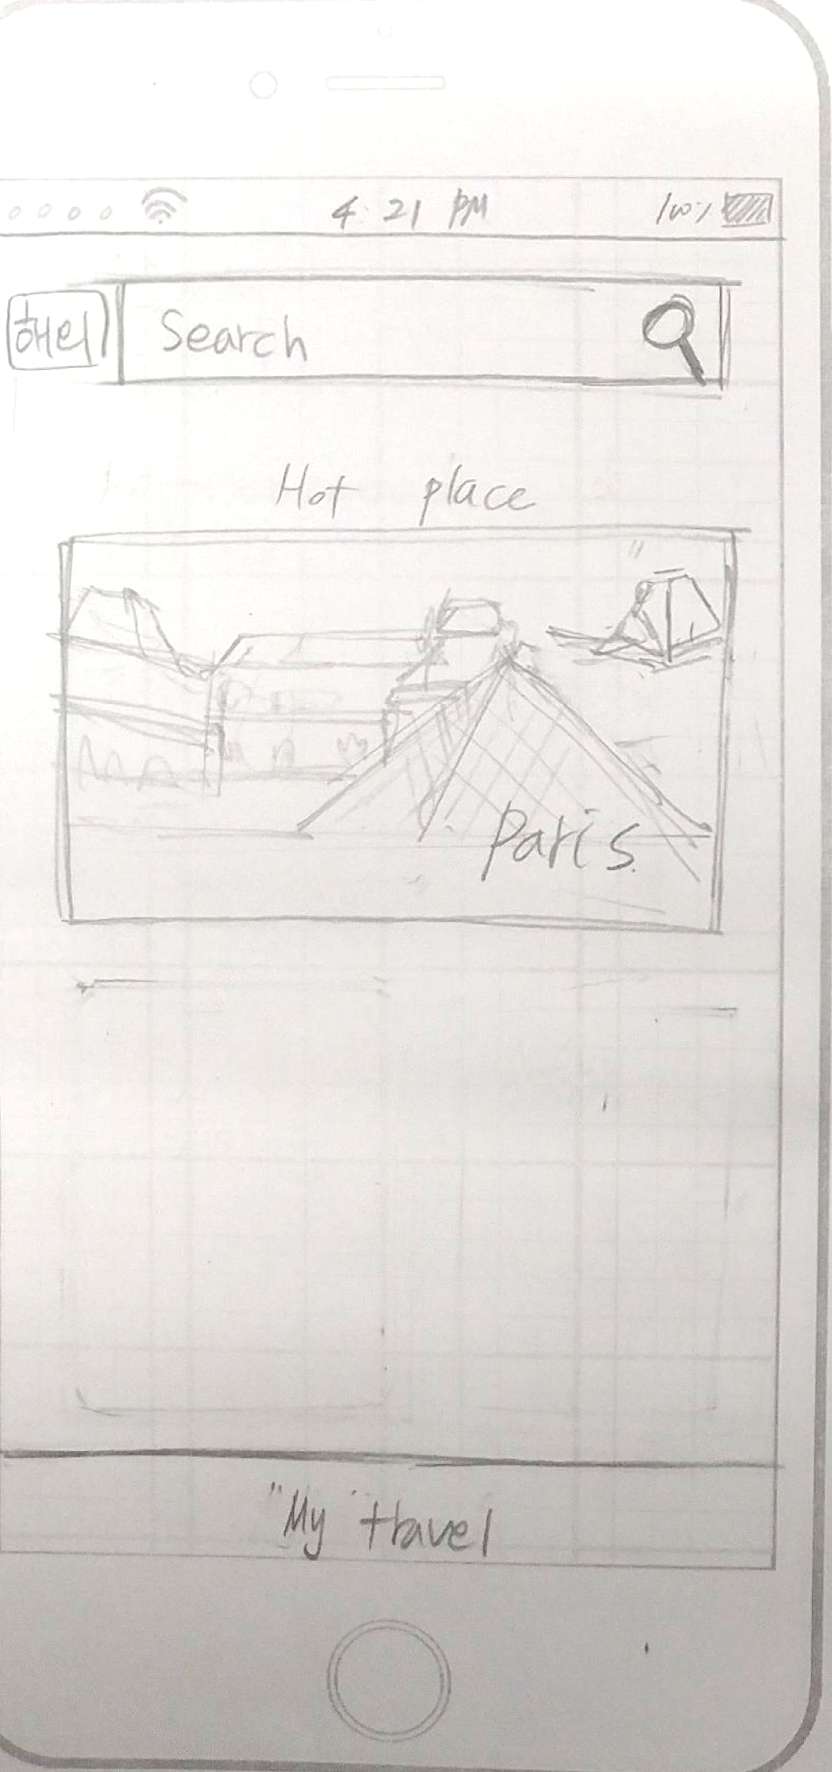 4:21 PM 100%
해외 Search
Hot place
Paris
"My" travel